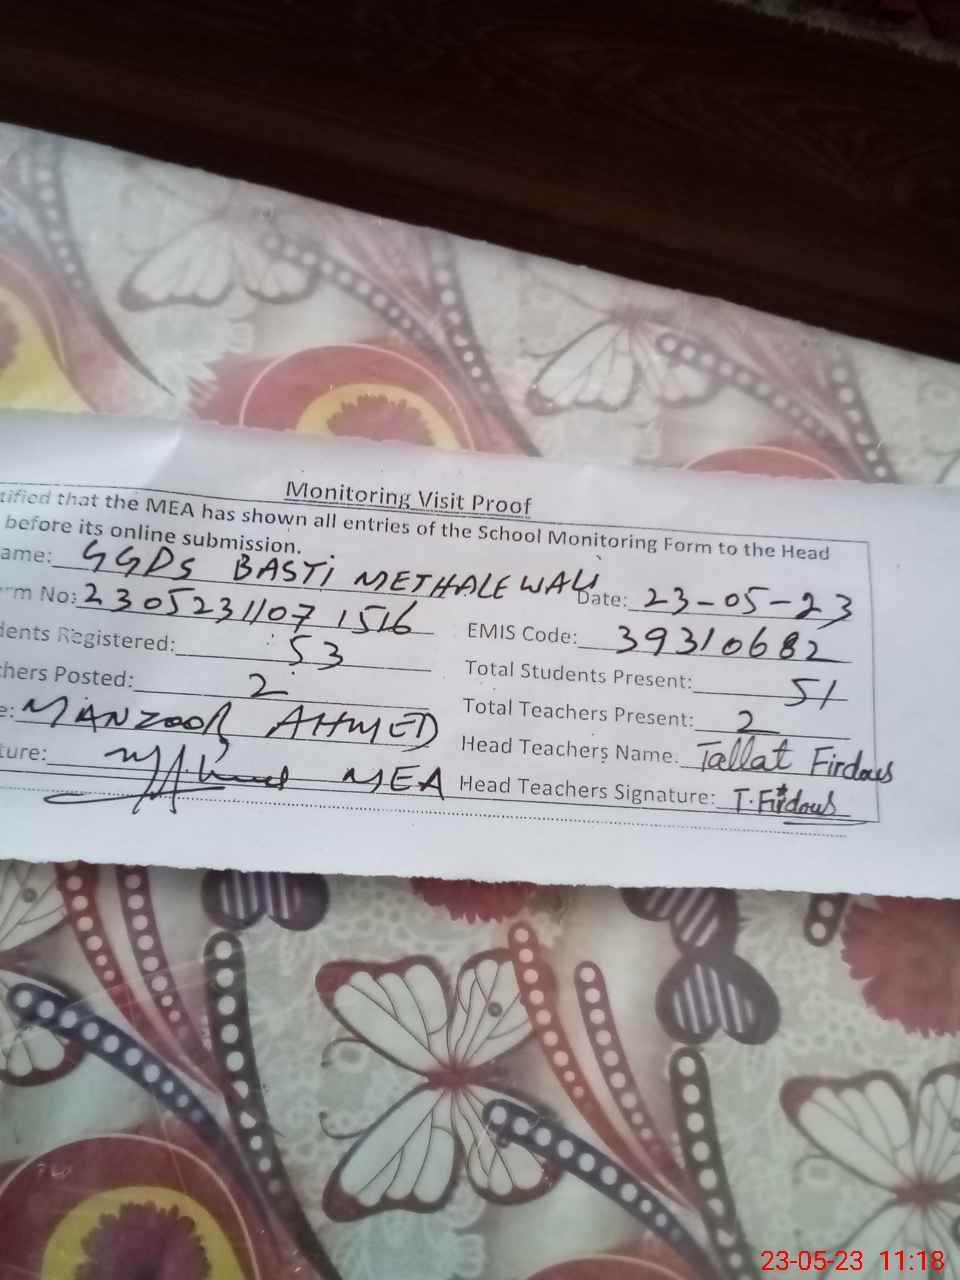 Monitoring Visit Proof
tified that the MEA has shown all entries of the School Monitoring Form to the Head
before its online submission.
ame: GGPS BASTI METHALE WALI Date: 23-05-23
rm No: 23052311071516 EMIS Code: 39310682
dents Registered: 53 Total Students Present: 51
hers Posted: 2 Total Teachers Present: 2
e: MANZOOR AHMED Head Teachers Name. Tallat Firdous
ture: MEA Head Teachers Signature: T.Firdous
23-05-23 11:18